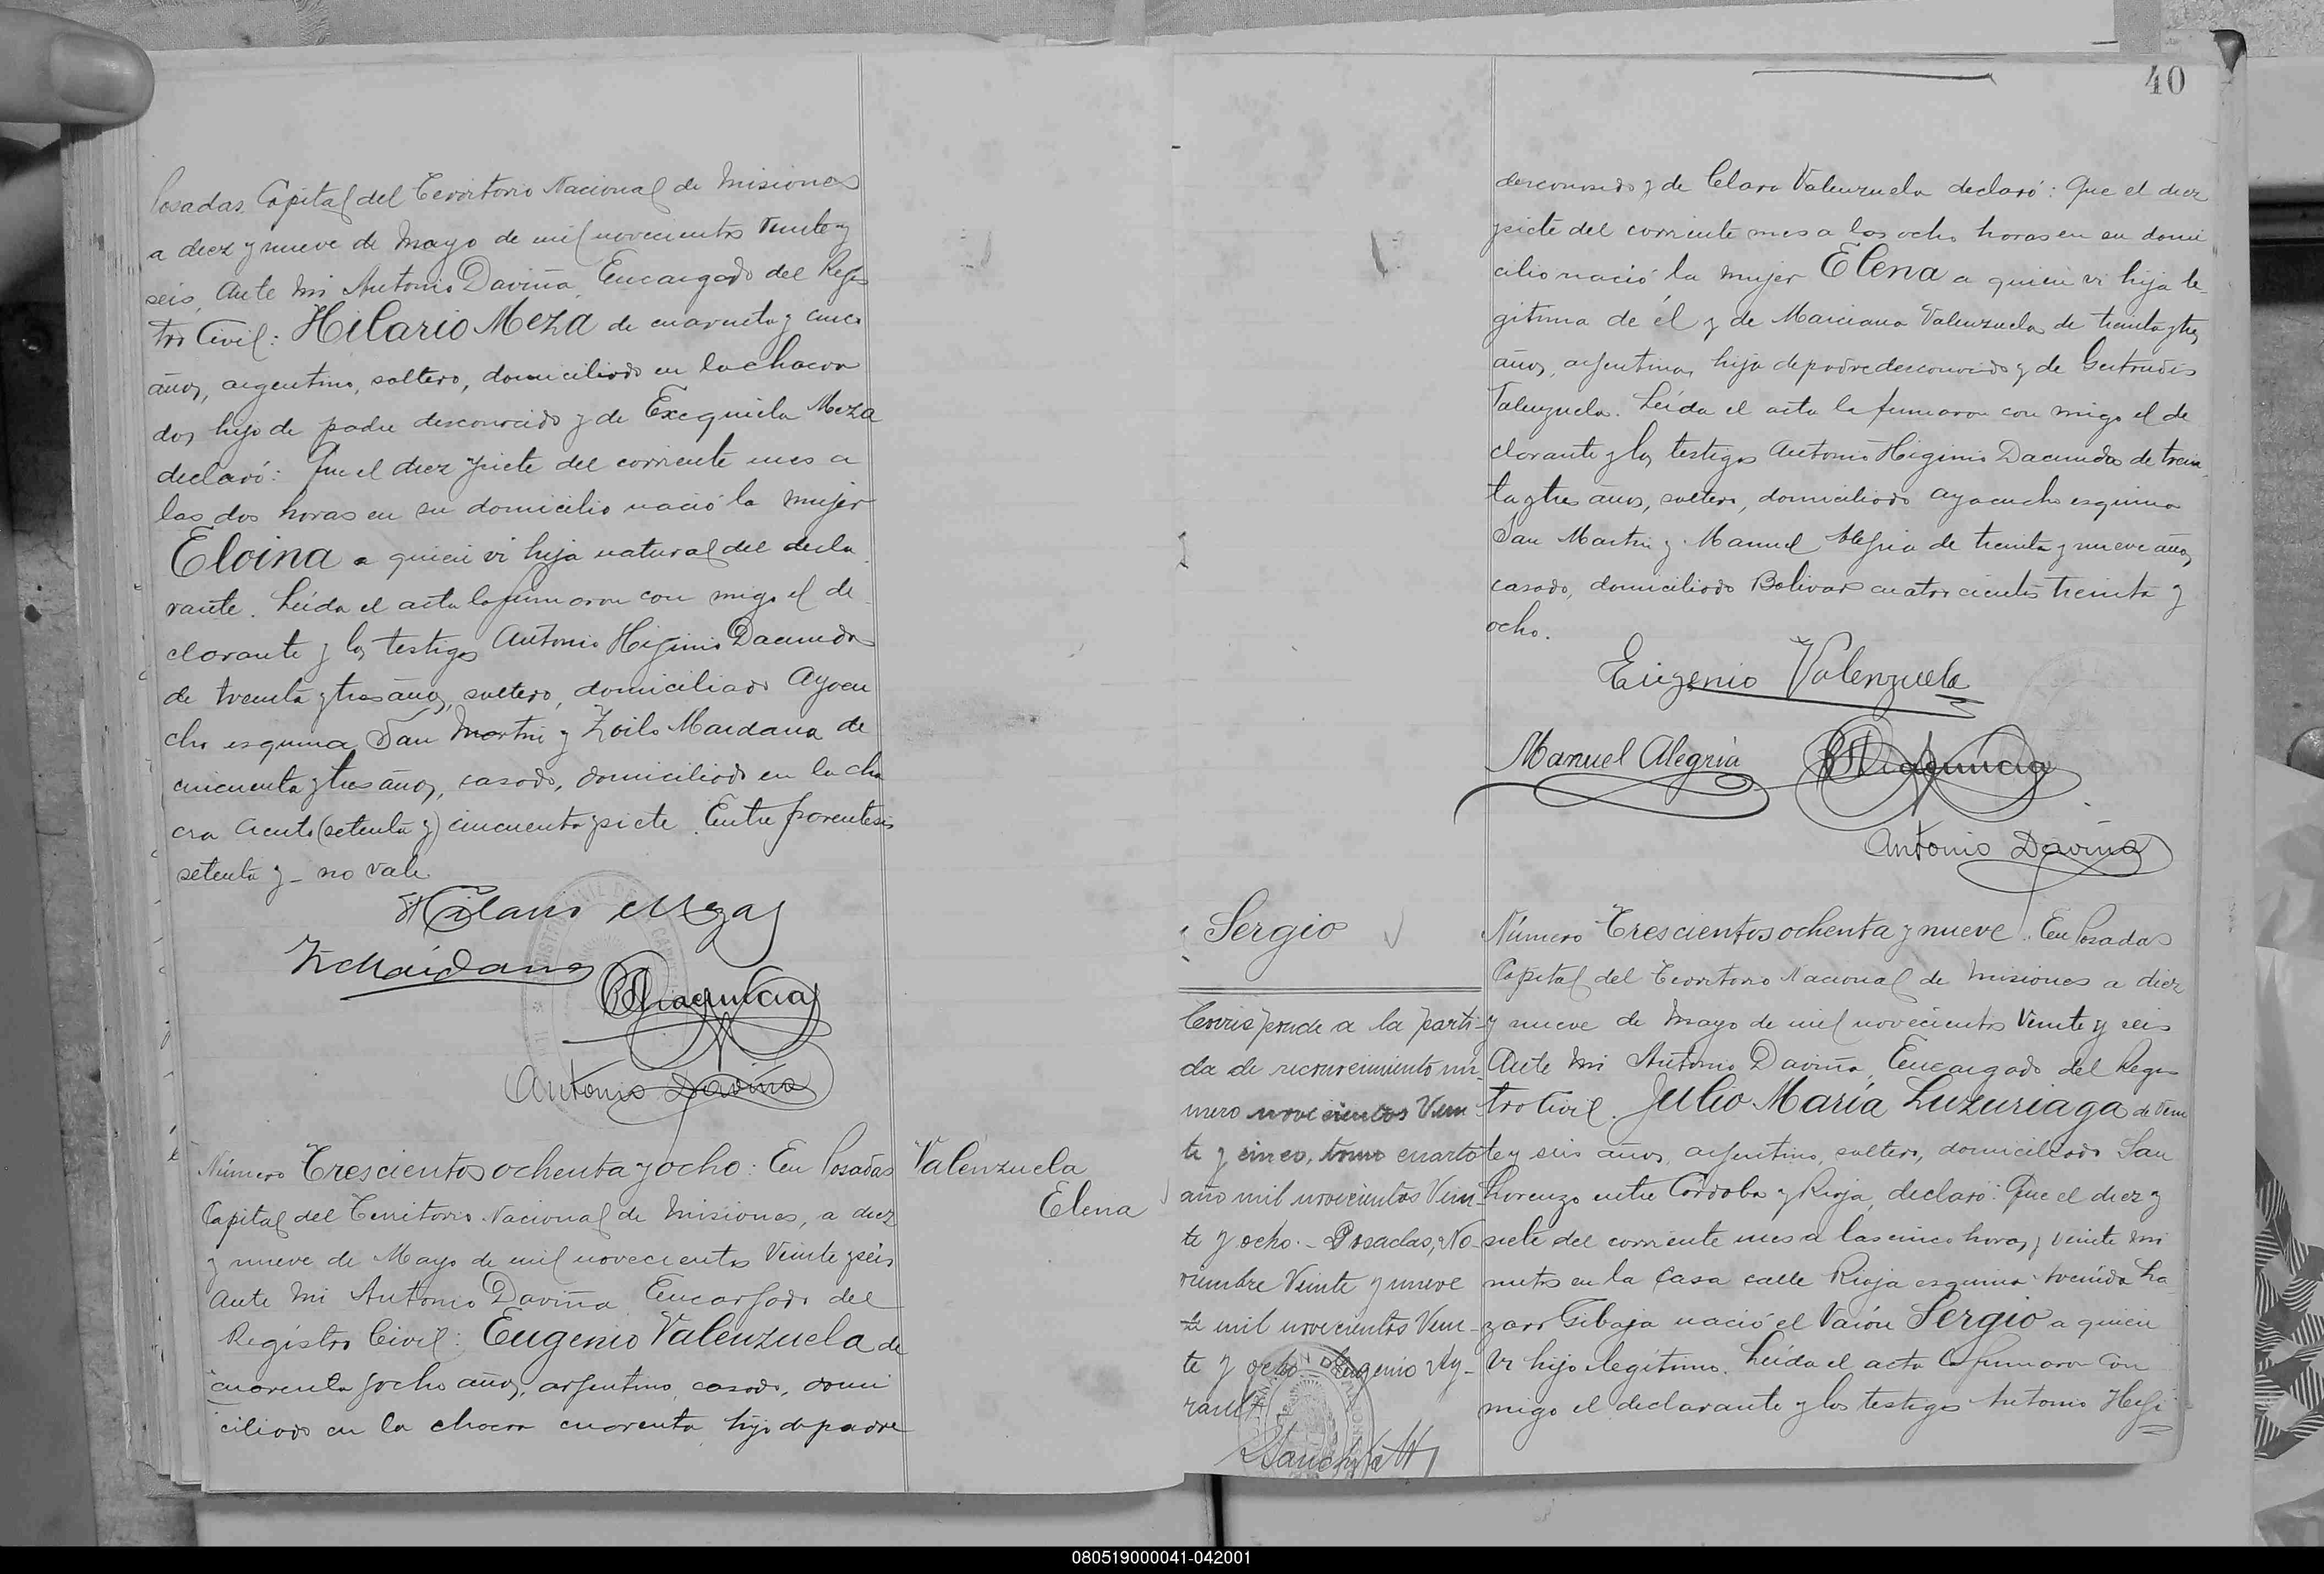 Posadas Capital del Territorio Nacional de Misiones
a diez y nueve de Mayo de mil novecientos Veinte y
seis, Ante mi Antonio Daviña, Encargado del Regis
tro Civil: Hilario Meza de cuarenta y cinco
años, argentino, soltero, domiciliado en la chacra
dos hijo de padre desconocido y de Exequiela Meza
declaró: Que el diez y siete del corriente mes a
las dos horas en su domicilio nació la mujer
Eloina a quien vi hija natural del decla
rante. Leída el acta la firmaron con migo el de
clarante y los testigos Antonio Higinio Dacunda
de treinta y tres años, soltero, domiciliado Ayacu
cho esquina San Martin y Zoilo Maidana de
cincuenta y tres años, casado, domiciliado en la cha
cra ciento (setenta y) cincuenta y siete. Entre parentesis
setenta y - no vale.
Hilario Meza
Z Maidana
Antonio Daviña
Número Trescientos ochenta y ocho: En Posadas
Capital del Territorio Nacional de Misiones, a diez
y nueve de Mayo de mil novecientos Veinte y seis
Ante mi Antonio Daviña Encargado del
Registro Civil: Eugenio Valenzuela de
cuarenta y ocho años, argentino, casado, domi
ciliado en la chacra cuarenta hijo de padre
Valenzuela
Elena
40
desconocido y de Clara Valenzuela declaró: Que el diez
y siete del corriente mes a las ocho horas en su domi
cilio nació la mujer Elena a quien vi hija le-
gitima de él y de Marciana Valenzuela de treinta y tres
años, argentina, hija de padre desconocido y de Gertrudis
Valenzuela. Leída el acta la firmaron con migo el de
clarante y los testigos Antonio Higinio Dacunda de trein
ta y tres años, soltero, domiciliado Ayacucho esquina
San Martin y Manuel Alegria de treinta y nueve años,
casado, domiciliado Bolivar cuatrocientos treinta y
ocho.
Eugenio Valenzuela
Manuel Alegria
Antonio Daviña
Sergio
Corresponde a la parti-
da de reconocimiento nú-
mero novecientos Vein
te y cinco, tomo cuarto
año mil novecientos Vein-
te y ocho.- Posadas, No-
viembre Veinte y nueve
de mil novecientos Vein-
te y ocho.- Eugenio Ay-
rault
Número Trescientos ochenta y nueve. En Posadas
Capital del Territorio Nacional de Misiones a diez
y nueve de Mayo de mil novecientos Veinte y seis
Ante mi Antonio Daviña, Encargado del Regis
tro Civil. Julio María Luzuriaga de Vein
te y seis años, argentino, soltero, domiciliado San
Lorenzo entre Córdoba y Rioja, declaró: Que el diez y
siete del corriente mes a las cinco horas y veinte mi
nutos en la casa calle Rioja esquina Avenida La
zaro Gibaja nació el Varón Sergio a quien
vi hijo ilegítimo. Leída el acta la firmaron con
migo el declarante y los testigos Antonio Higi
080519000041-042001